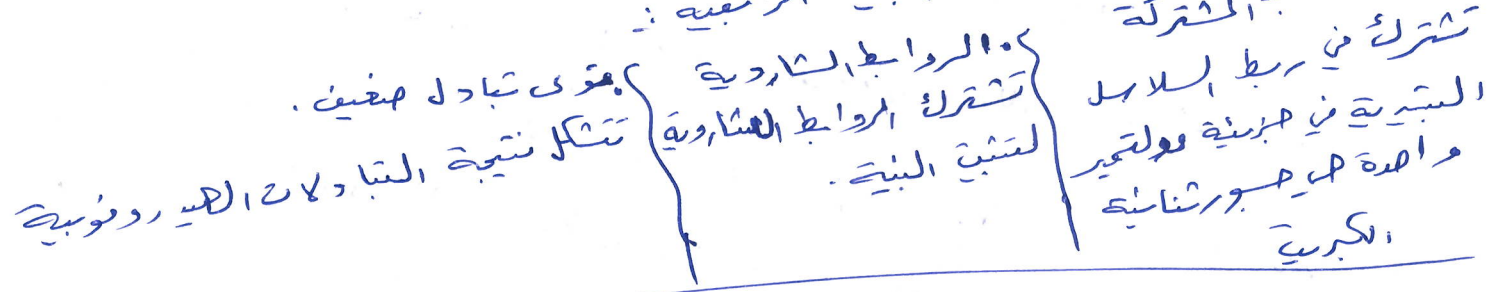 المشتركة
تشترك في ربط السلاسل
الببتيدية في جزيئة بولتمير
واحدة هي جسور ثنائية
الكبريت
• الروابط الشاردية
تشترك الروابط الشاردية
لتثبيت البنية.
• قوى تبادل ضعيف.
تتشكل نتيجة التبادلات الهيدروفوبية